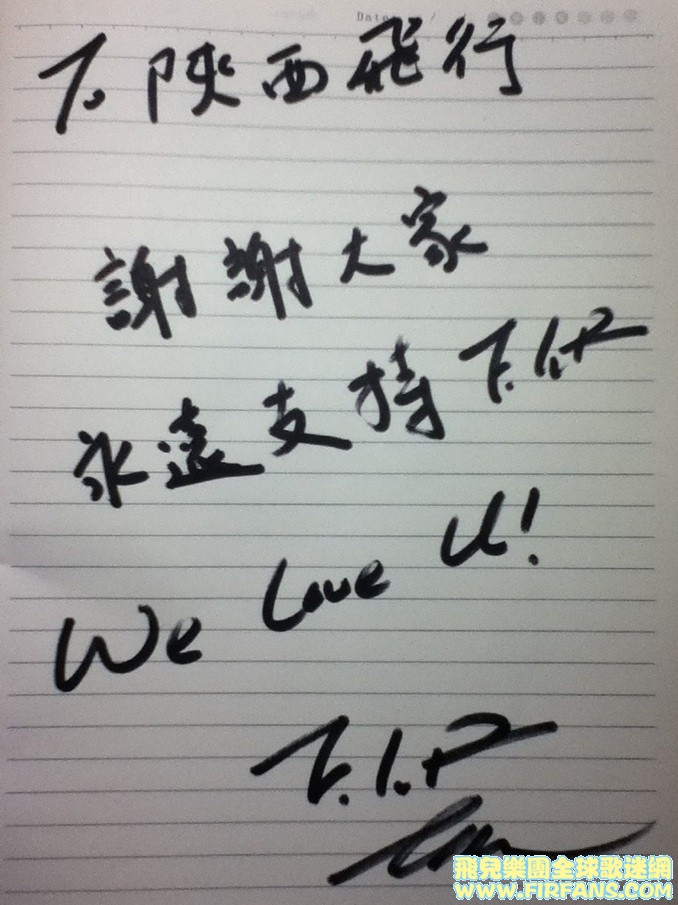 Date
To 陝西飛行
謝謝大家
永遠支持 F.I.R
We Love U!
F.I.R
飛兒樂團全球歌迷網
WWW.FIRFANS.COM